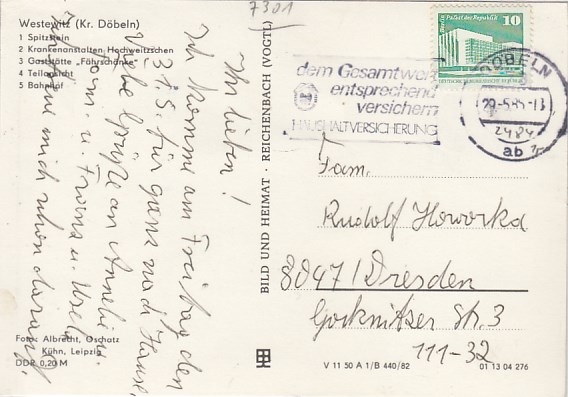 7301
Westewitz (Kr. Döbeln)
1 Spitzstein
2 Krankenanstalten Hochweitzschen
3 Gaststätte „Fährschänke“
4 Teilansicht
5 Bahnhof
Ihr lieben!
Ich komme am Freitag den
31.5. für ganz nach Hause.
Viele Grüße an Annekie
Tom u. Froma u. Ursela
mich schon darauf
Foto: Albrecht, Oschatz
Kühn, Leipzig
DDR 0,20 M
BILD UND HEIMAT · REICHENBACH (VOGTL)
Palast der Republik
10
dem Gesamtwert
entsprechend
versichern
HAUSHALTVERSICHERUNG
DÖBELN
2484
ab
Fam.
Rudolf Howorka
8047/Dresden
Gorknitzer Str. 3
111-32
V 11 50 A 1/B 440/82
01 13 04 276